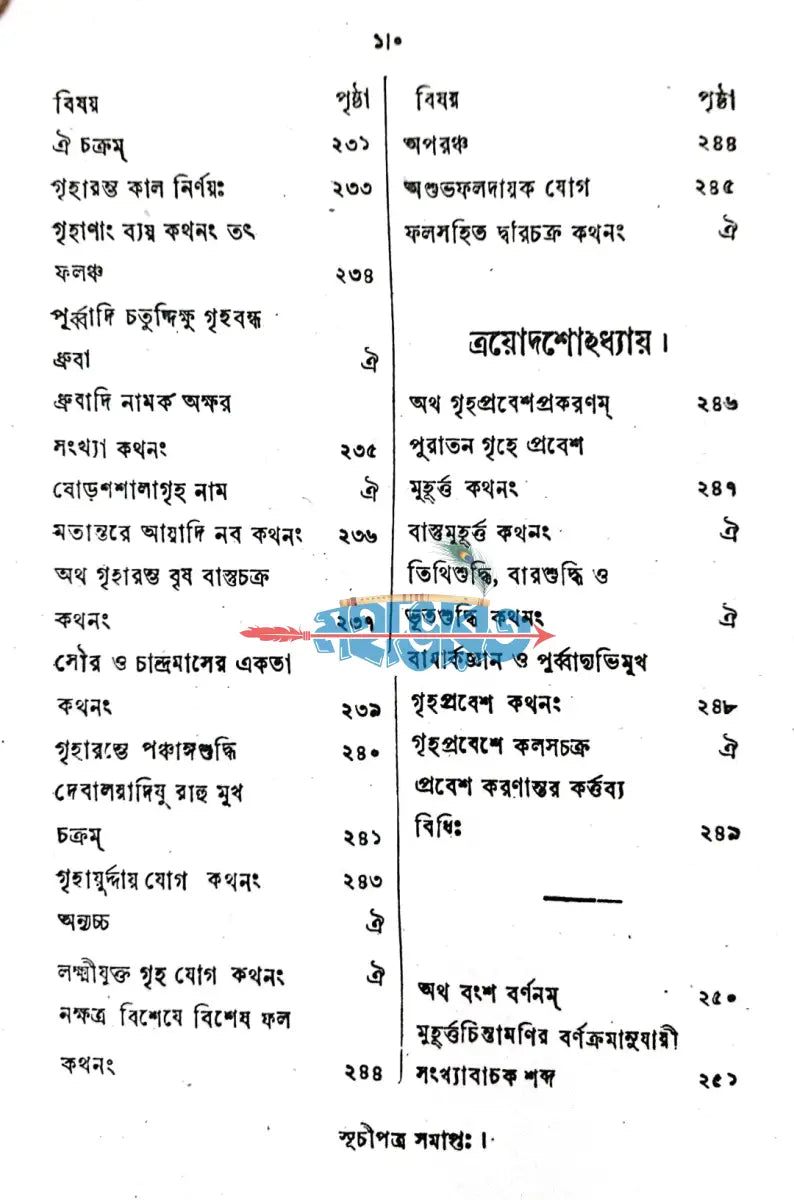 ১৷০
বিষয় পৃষ্ঠা
ঐ চক্রম্ ২৩১
গৃহারম্ভ কাল নির্ণয়ঃ ২৩৩
গৃহাণাং ব্যয় কথনং তৎ
ফলঞ্চ ২৩৪
পূর্ব্বাদি চতুর্দ্দিক্ষু গৃহবন্ধ
ধ্রুবা ঐ
ধ্রুবাদি নামক অক্ষর
সংখ্যা কথনং ২৩৫
ষোড়শশালাগৃহ নাম ঐ
মতান্তরে আয়াদি নব কথনং ২৩৬
অথ গৃহারম্ভ বৃষ বাস্তুচক্র
কথনং ২৩৭
সৌর ও চান্দ্রমাসের একতা
কথনং ২৩৯
গৃহারম্ভে পঞ্চাঙ্গশুদ্ধি ২৪০
দেবালয়াদিষু রাহু মুখ
চক্রম্ ২৪১
গৃহায়ুর্দ্দায় যোগ কথনং ২৪৩
অন্যচ্চ ঐ
লক্ষ্মীযুক্ত গৃহ যোগ কথনং ঐ
নক্ষত্র বিশেষে বিশেষ ফল
কথনং ২৪৪
বিষয় পৃষ্ঠা
অপরঞ্চ ২৪৪
অশুভফলদায়ক যোগ ২৪৫
ফলসহিত দ্বারচক্র কথনং ঐ
ত্রয়োদশোঽধ্যায়।
অথ গৃহপ্রবেশপ্রকরণম্ ২৪৬
পুরাতন গৃহে প্রবেশ
মুহূর্ত্ত কথনং ২৪৭
বাস্তুমুহূর্ত্ত কথনং ঐ
তিথিশুদ্ধি, বারশুদ্ধি ও
ভূতশুদ্ধি কথনং ঐ
মহাভারত
বামার্কজ্ঞান ও পূর্ব্বাদ্যভিমুখ
গৃহপ্রবেশ কথনং ২৪৮
গৃহপ্রবেশে কলসচক্র ঐ
প্রবেশ করণান্তর কর্ত্তব্য
বিধিঃ ২৪৯
অথ বংশ বর্ণনম্ ২৫০
মুহূর্ত্তচিন্তামণির বর্ণক্রমানুযায়ী
সংখ্যাবাচক শব্দ ২৫১
সূচীপত্র সমাপ্তঃ।